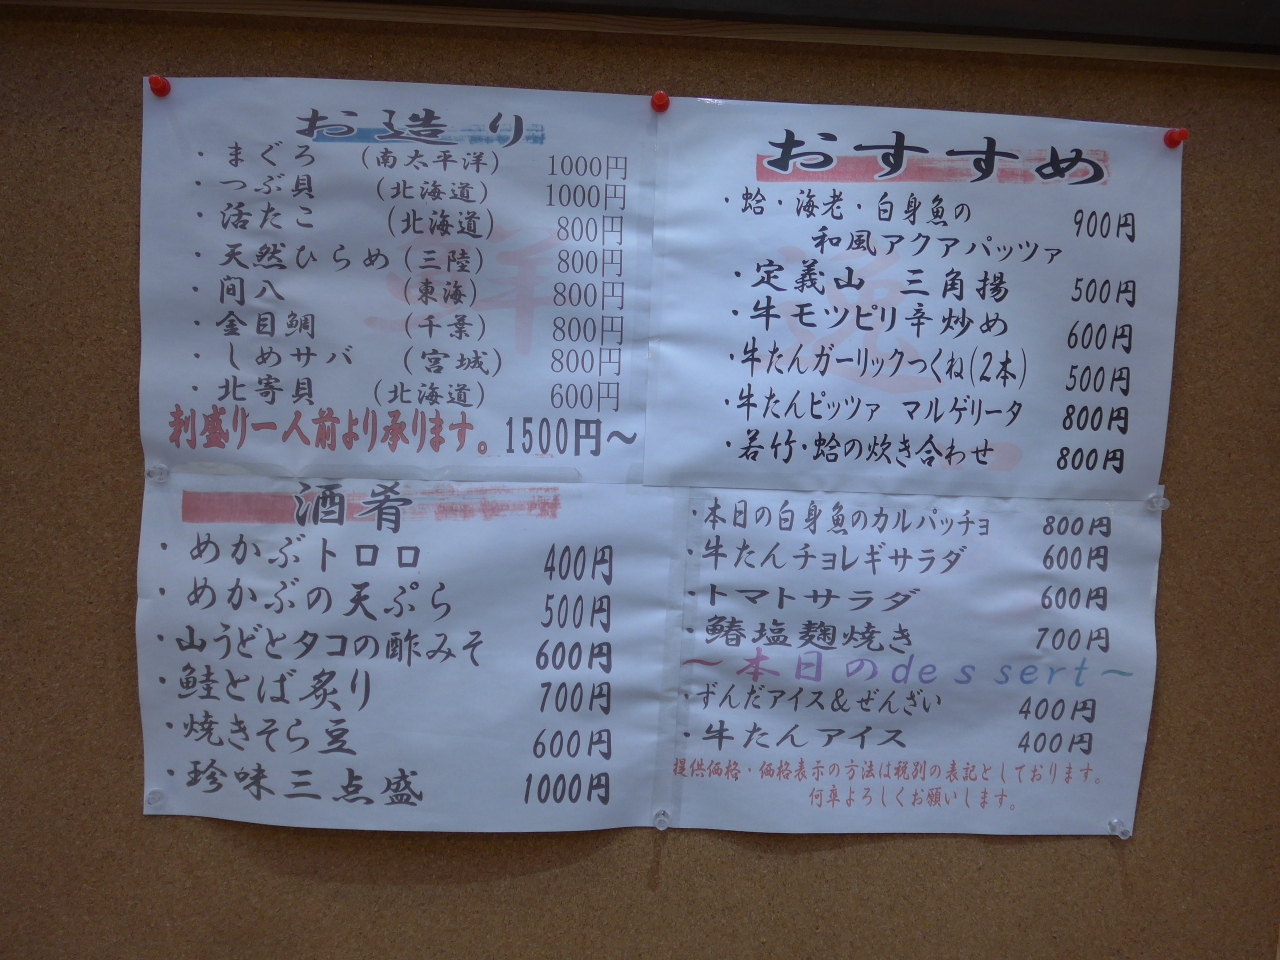 お造り
・まぐろ (南太平洋) 1000円
・つぶ貝 (北海道) 1000円
・活たこ (北海道) 800円
・天然ひらめ (三陸) 800円
・間八 (東海) 800円
・金目鯛 (千葉) 800円
・しめサバ (宮城) 800円
・北寄貝 (北海道) 600円
刺盛り一人前より承ります。1500円～
おすすめ
・蛤・海老・白身魚の
和風アクアパッツァ 900円
・定義山 三角揚 500円
・牛モツピリ辛炒め 600円
・牛たんガーリックつくね(2本) 500円
・牛たんピッツァ マルゲリータ 800円
・若竹・蛤の炊き合わせ 800円
酒肴
・めかぶトロロ 400円
・めかぶの天ぷら 500円
・山うどとタコの酢みそ 600円
・鮭とば炙り 700円
・焼きそら豆 600円
・珍味三点盛 1000円
・本日の白身魚のカルパッチョ 800円
・牛たんチョレギサラダ 600円
・トマトサラダ 600円
・鰆塩麹焼き 700円
～本日のdessert～
・ずんだアイス＆ぜんざい 400円
・牛たんアイス 400円
提供価格・価格表示の方法は税別の表記としております。
何卒よろしくお願いします。